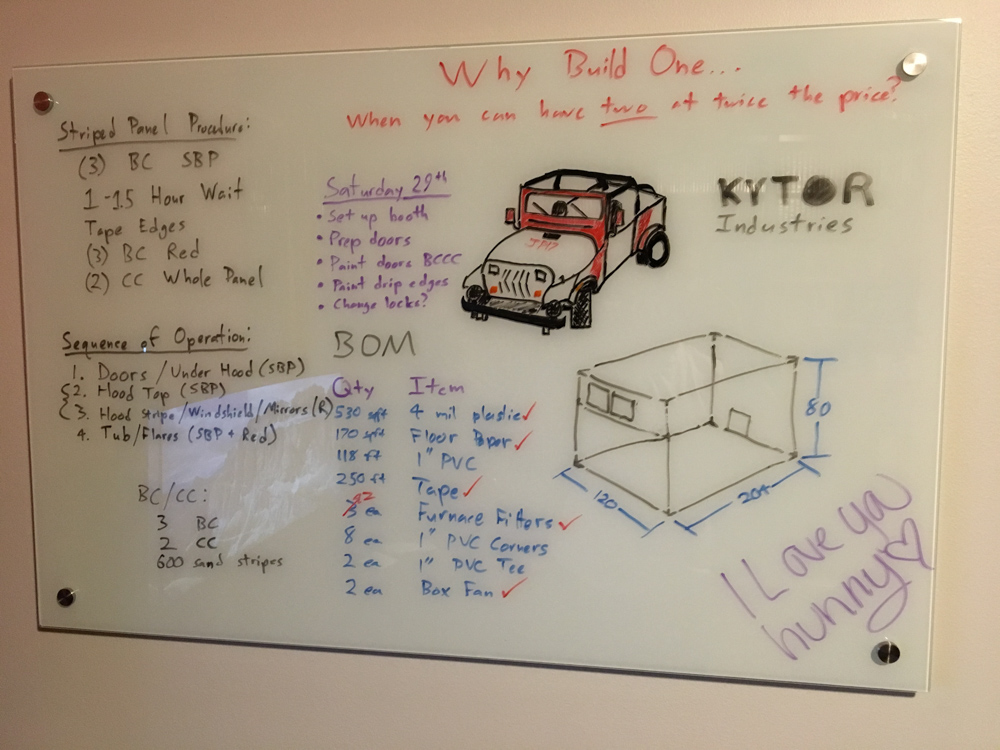 Why Build One...
When you can have two at twice the price?
Striped Panel Procedure:
(3) BC SBP
1-1.5 Hour Wait
Tape Edges
(3) BC Red
(2) CC Whole Panel
Saturday 29th
• Set up booth
• Prep doors
• Paint doors BCCC
• Paint drip edges
• Change locks?
KYTOR
Industries
Sequence of Operation:
1. Doors/Under Hood (SBP)
2. Hood Top (SBP)
3. Hood Stripe/Windshield/Mirrors (R)
4. Tub/Flares (SBP + Red)
BC/CC:
3 BC
2 CC
600 sand stripes
BOM
Qty Item
530 sqft 4 mil plastic ✓
170 sqft Floor Paper ✓
118 ft 1" PVC
250 ft Tape ✓
ea Furnace Filters ✓
8 ea 1" PVC Corners
2 ea 1" PVC Tee
2 ea Box Fan ✓
80
120
204
I Love ya
hunny♡